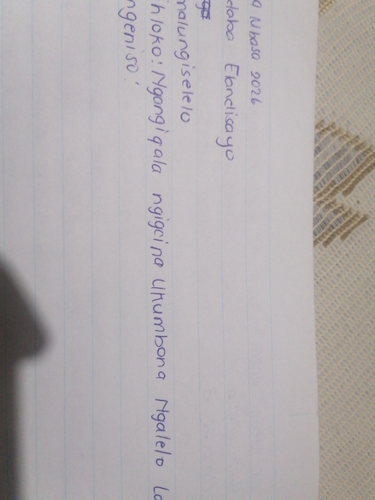 Nbasa 2026
Elandisayo
malungiselelo
hloko: Ngangiqala ngigcina Ukumbona Ngalelo La
ngeniso: